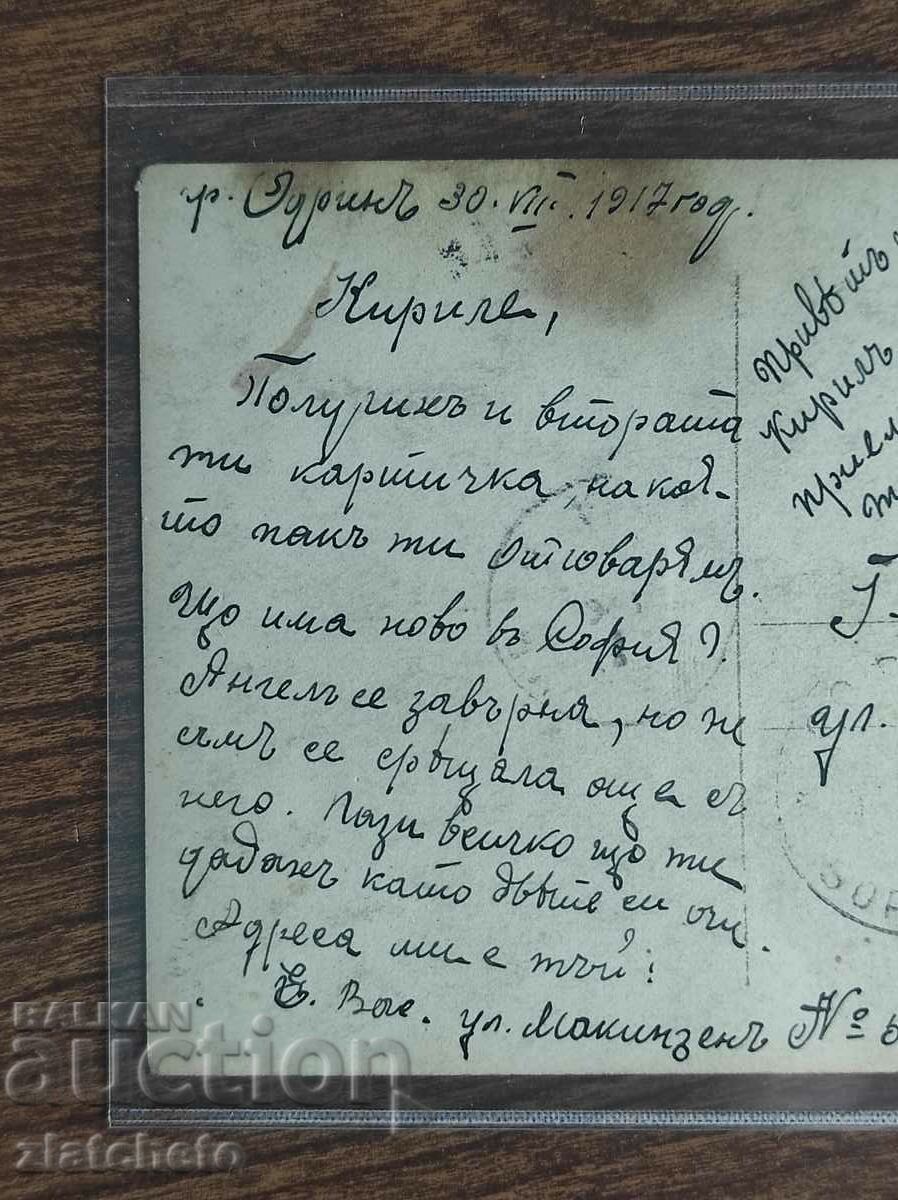 гр. Одринъ 30. VIII. 1917 год.
Кириле,
Получихъ и втората
ти картичка, на коя-
то пакъ ти отговарямъ.
Що има ново въ София?
Ангелъ се завърна, но не
съмъ се срѣщала още съ
него. Пази всичко що ти
дадохъ като двѣтѣ си очи.
Адреса ми е тъй:
ул. Макинзенъ №
Привѣтъ
Кирилъ
прием
Г.
ул.
BALKAN
auction
zlatcheto